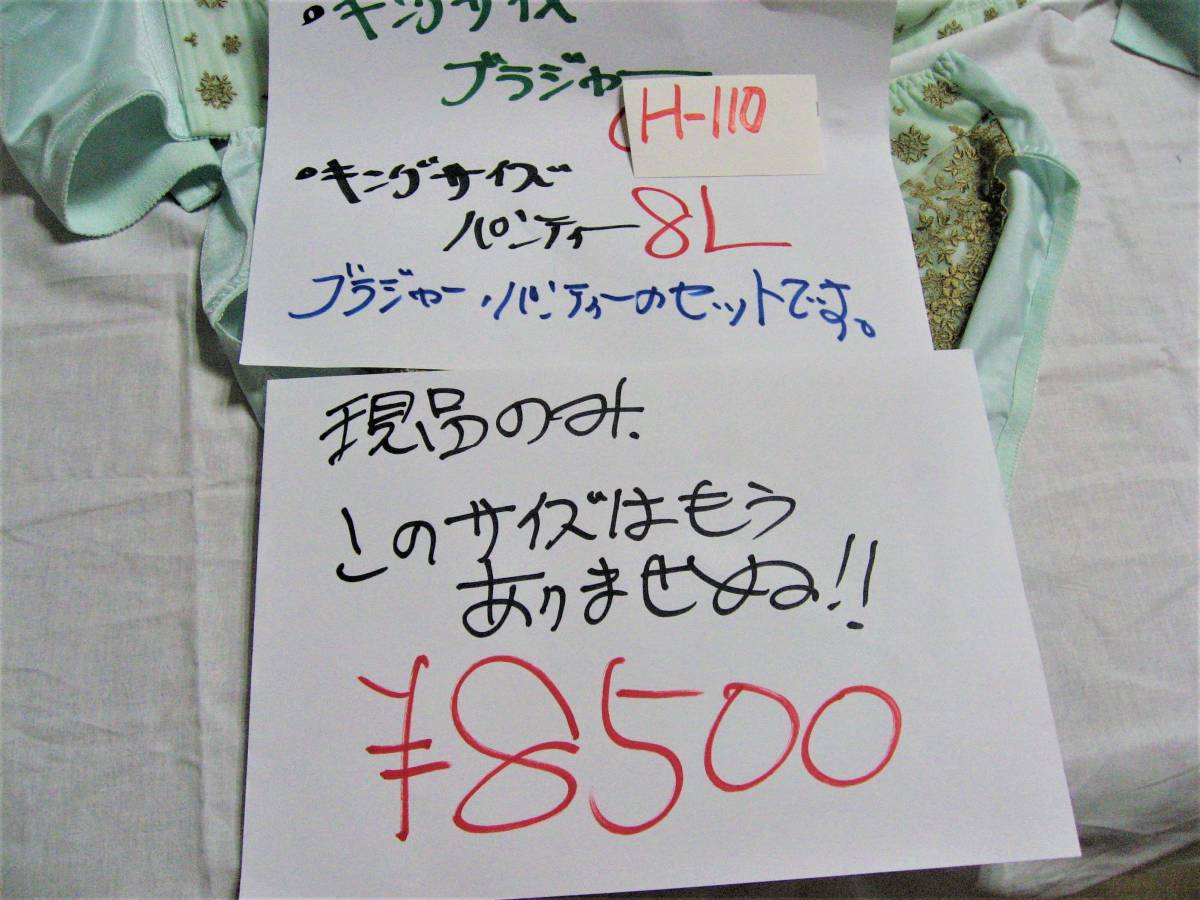 ・キングサイズ
ブラジャー
H-110
・キングサイズ
パンティー 8L
ブラジャー・パンティーのセットです。
現品のみ
このサイズはもう
ありませぬ!!
¥8500